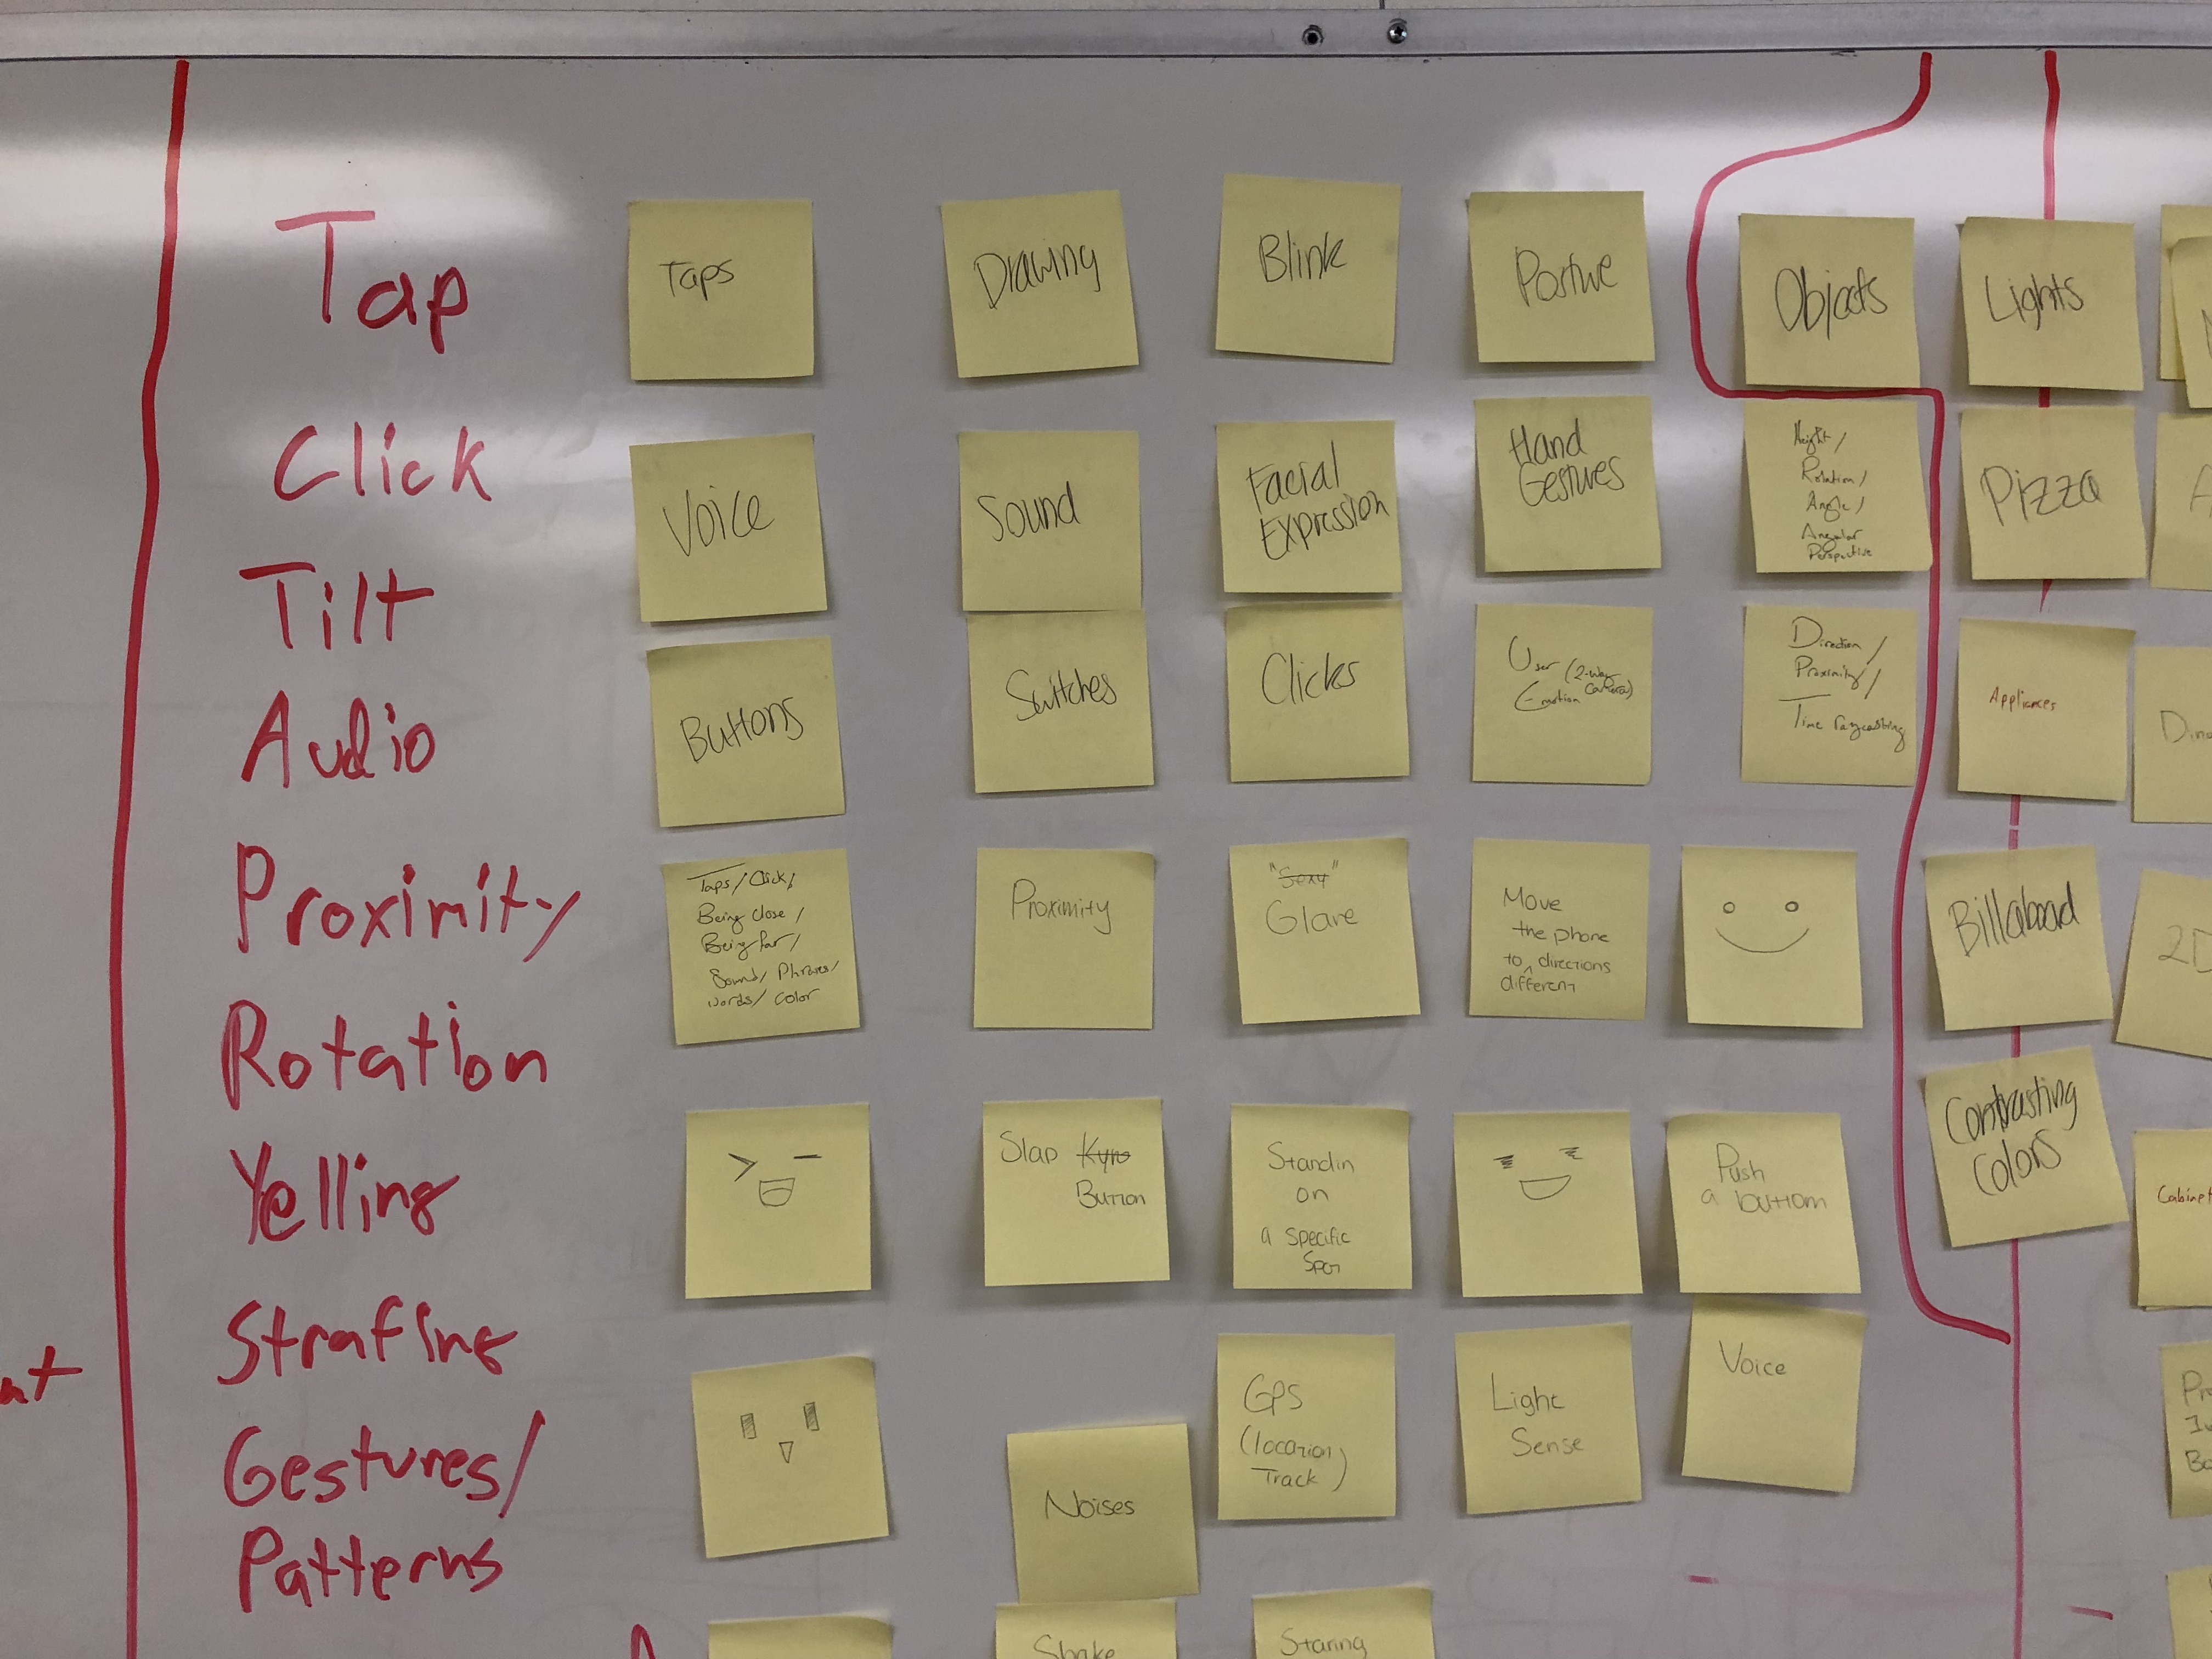 Tap
Click
Tilt
Audio
Proximity
Rotation
Yelling
Strafing
Gestures/
Patterns
Taps
Drawing
Blink
Postue
Objects
Lights
Voice
Sound
Facial
Expression
Hand
Gestures
Height/
Rotation/
Angle/
Angular
Perspective
Pizza
Buttons
Switches
Clicks
User (2-way
Emotion camera)
Direction/
Proximity/
Time raycasting
Appliances
Taps/Click/
Being close/
Being far/
Sound/Phrases/
words/color
Proximity
"Sexy"
Glare
Move
the phone
to directions
different
Billaboad
2D
Slap Kyro
Button
Standin
on
a specific
Spot
Push
a buttom
Contrasting
Colors
Noises
GPS
(location
Track)
Light
Sense
Voice
Shake
Staring